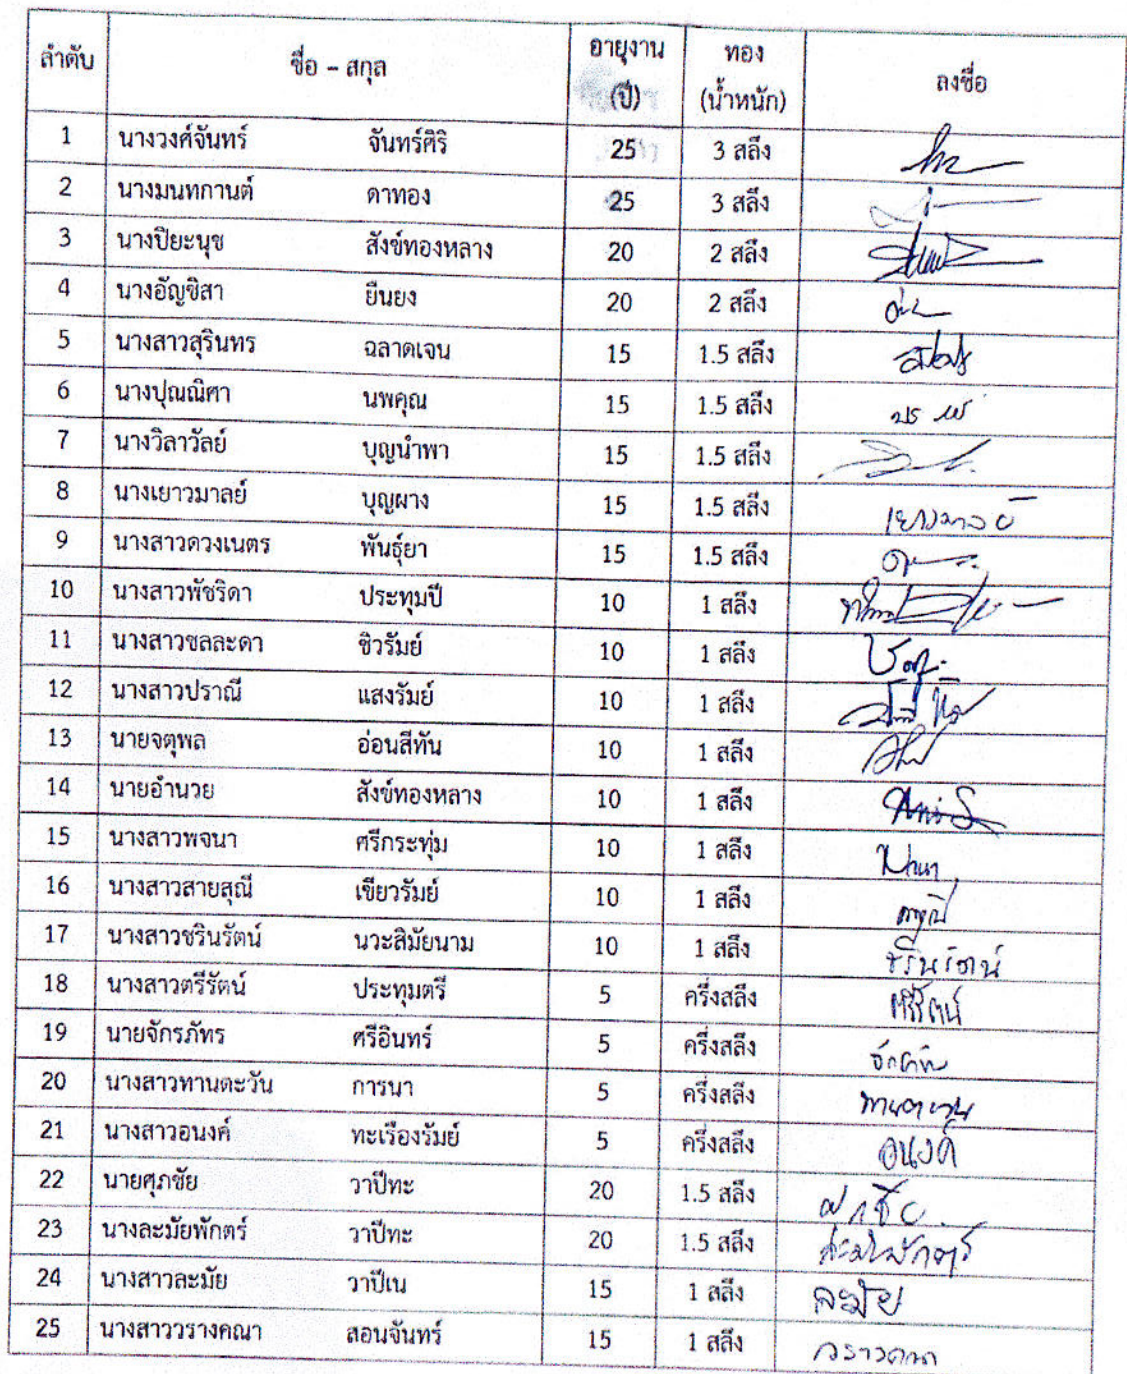 ลำดับ ชื่อ – สกุล อายุงาน (ปี) ทอง (น้ำหนัก) ลงชื่อ
1 นางวงศ์จันทร์ จันทร์ศิริ 25 3 สลึง
2 นางมนทกานต์ ดาทอง 25 3 สลึง
3 นางปิยะนุช สังข์ทองหลาง 20 2 สลึง
4 นางอัญชิสา ยืนยง 20 2 สลึง
5 นางสาวสุรินทร ฉลาดเจน 15 1.5 สลึง
6 นางปุณณิศา นพคุณ 15 1.5 สลึง
7 นางวิลาวัลย์ บุญนำพา 15 1.5 สลึง
8 นางเยาวมาลย์ บุญผาง 15 1.5 สลึง เยาวมาลย์
9 นางสาวดวงเนตร พันธุ์ยา 15 1.5 สลึง
10 นางสาวพัชริดา ประทุมปี 10 1 สลึง
11 นางสาวชลละดา ชิวรัมย์ 10 1 สลึง
12 นางสาวปราณี แสงรัมย์ 10 1 สลึง
13 นายจตุพล อ่อนสีทัน 10 1 สลึง
14 นายอำนวย สังข์ทองหลาง 10 1 สลึง
15 นางสาวพจนา ศรีกระทุ่ม 10 1 สลึง
16 นางสาวสายสุณี เขียวรัมย์ 10 1 สลึง
17 นางสาวชรินรัตน์ นวะสิมัยนาม 10 1 สลึง ชรินรัตน์
18 นางสาวตรีรัตน์ ประทุมตรี 5 ครึ่งสลึง ตรีรัตน์
19 นายจักรภัทร ศรีอินทร์ 5 ครึ่งสลึง
20 นางสาวทานตะวัน การนา 5 ครึ่งสลึง ทานตะวัน
21 นางสาวอนงค์ ทะเรืองรัมย์ 5 ครึ่งสลึง อนงค์
22 นายศุภชัย วาปีทะ 20 1.5 สลึง ศุภชัย
23 นางละมัยพักตร์ วาปีทะ 20 1.5 สลึง ละมัยพักตร์
24 นางสาวละมัย วาปีเน 15 1 สลึง ละมัย
25 นางสาววรางคณา สอนจันทร์ 15 1 สลึง วรางคณา